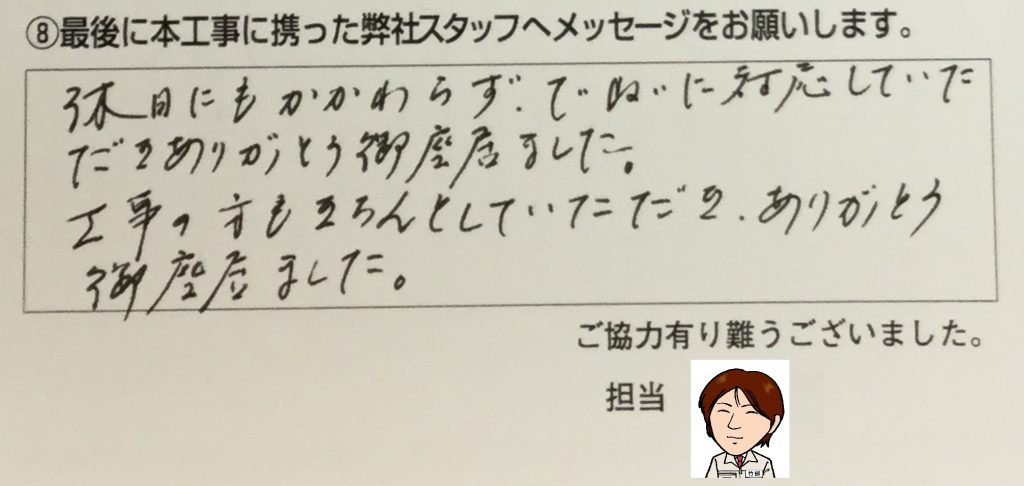 ⑧最後に本工事に携った弊社スタッフへメッセージをお願いします。
休日にもかかわらず、でいねいに対応していた
だきありがとう御座居ました。
工事の方もきちんとしていただき、ありがとう
御座居ました。
ご協力有り難うございました。
担当